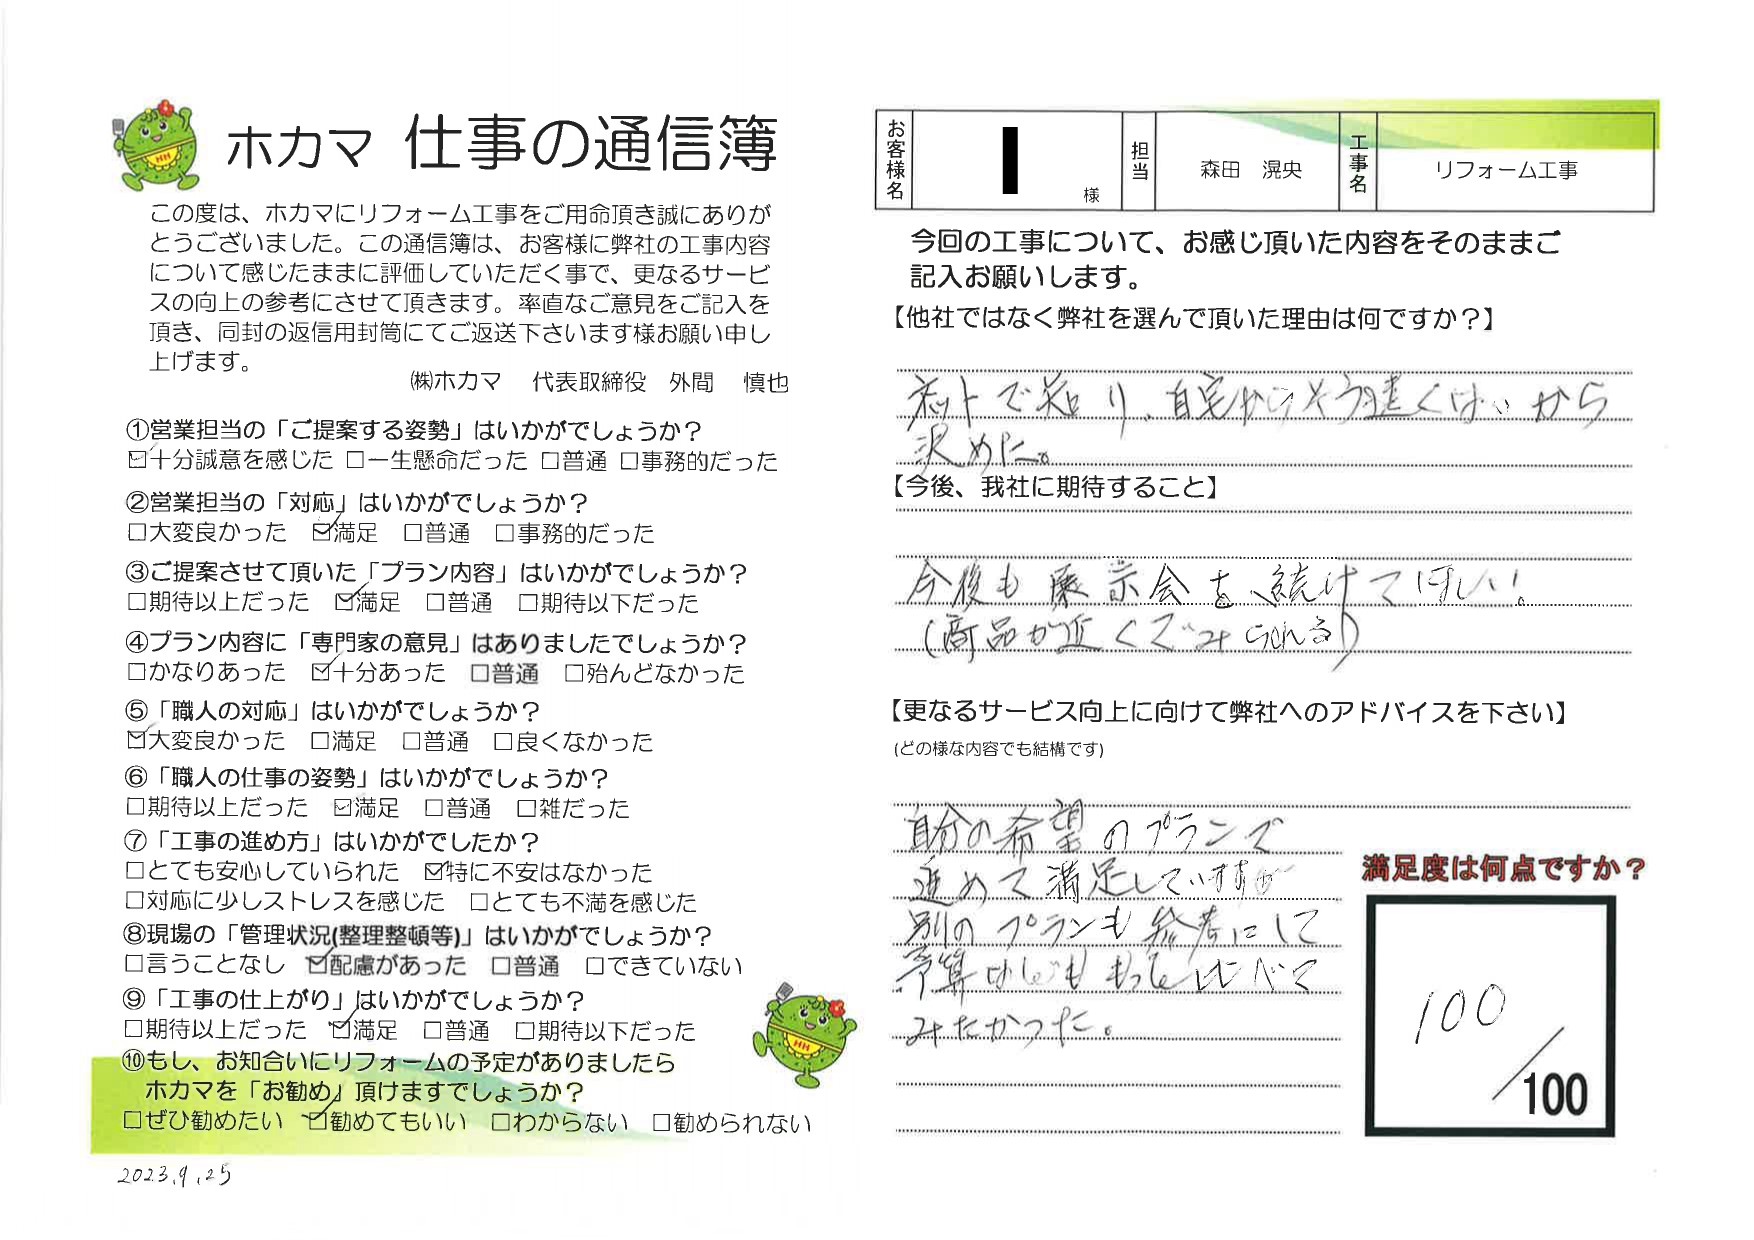 ホカマ 仕事の通信簿
この度は、ホカマにリフォーム工事をご用命頂き誠にありが
とうございました。この通信簿は、お客様に弊社の工事内容
について感じたままに評価していただく事で、更なるサービ
スの向上の参考にさせて頂きます。率直なご意見をご記入を
頂き、同封の返信用封筒にてご返送下さいます様お願い申し
上げます。
㈱ホカマ 代表取締役 外間 慎也
①営業担当の「ご提案する姿勢」はいかがでしょうか？
☑十分誠意を感じた □一生懸命だった □普通 □事務的だった
②営業担当の「対応」はいかがでしょうか？
□大変良かった ☑満足 □普通 □事務的だった
③ご提案させて頂いた「プラン内容」はいかがでしょうか？
□期待以上だった ☑満足 □普通 □期待以下だった
④プラン内容に「専門家の意見」はありましたでしょうか？
□かなりあった ☑十分あった □普通 □殆んどなかった
⑤「職人の対応」はいかがでしょうか？
☑大変良かった □満足 □普通 □良くなかった
⑥「職人の仕事の姿勢」はいかがでしょうか？
□期待以上だった ☑満足 □普通 □雑だった
⑦「工事の進め方」はいかがでしたか？
□とても安心していられた ☑特に不安はなかった
□対応に少しストレスを感じた □とても不満を感じた
⑧現場の「管理状況(整理整頓等)」はいかがでしょうか？
□言うことなし ☑配慮があった □普通 □できていない
⑨「工事の仕上がり」はいかがでしょうか？
□期待以上だった ☑満足 □普通 □期待以下だった
⑩もし、お知合いにリフォームの予定がありましたら
ホカマを「お勧め」頂けますでしょうか？
□ぜひ勧めたい ☑勧めてもいい □わからない □勧められない
2023.9.25
お客様名 様 担当 森田 滉央 工事名 リフォーム工事
今回の工事について、お感じ頂いた内容をそのままご
記入お願いします。
【他社ではなく弊社を選んで頂いた理由は何ですか？】
ネットで知り、自宅からそう遠くはいから
決めた。
【今後、我社に期待すること】
今後も展示会を続けてほしい！
(商品が近くでみられる)
【更なるサービス向上に向けて弊社へのアドバイスを下さい】
(どの様な内容でも結構です)
自分の希望のプランで
進めて満足していますが
別のプランも参考にして
予算なしでももっとせべて
みたかった。
満足度は何点ですか？
100
/100